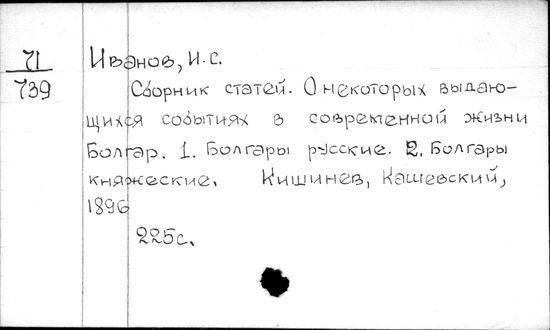 71
739
Иванов, И.С.
Сборник статей. О некоторых выдаю-
щихся событиях в современной жизни
Болгар. 1. Болгары русские. 2. Болгары
княжеские. Кишинев, Кашевский,
1896
225с.